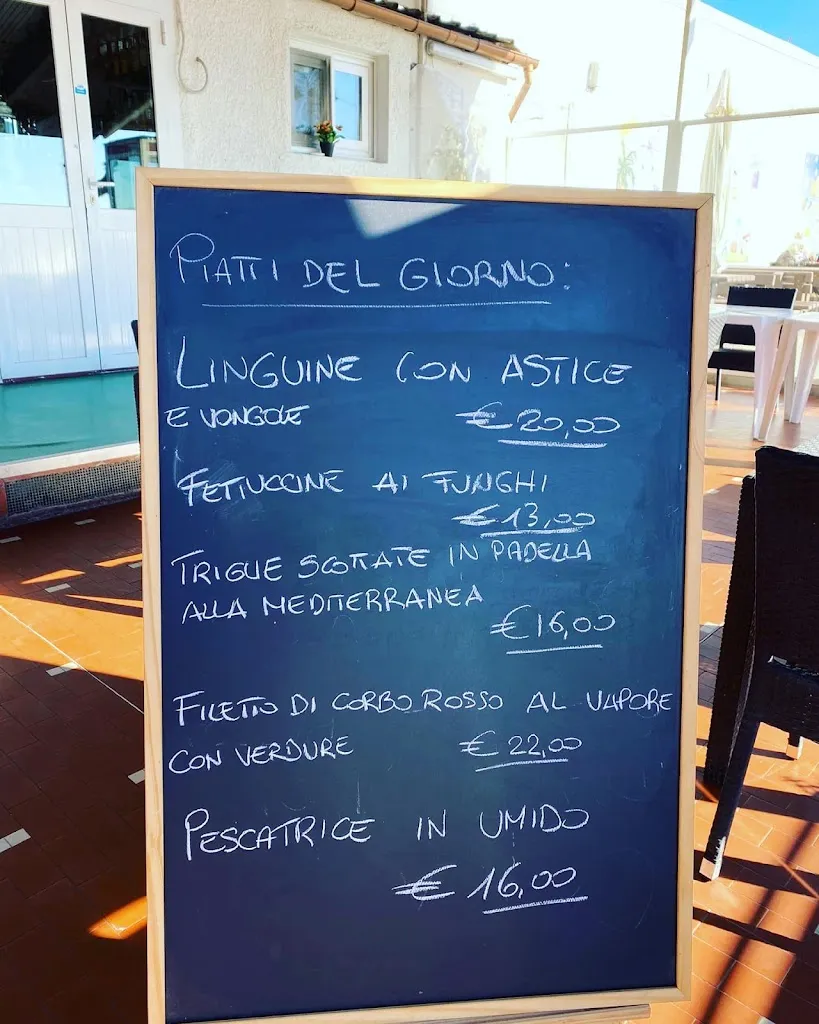 PIATTI DEL GIORNO:
LINGUINE CON ASTICE
E VONGOLE € 20,00
FETTUCCINE AI FUNGHI
€ 13,00
TRIGLIE SCOTTATE IN PADELLA
ALLA MEDITERRANEA
€ 16,00
FILETTO DI CORBO ROSSO AL VAPORE
CON VERDURE € 22,00
PESCATRICE IN UMIDO
€ 16,00